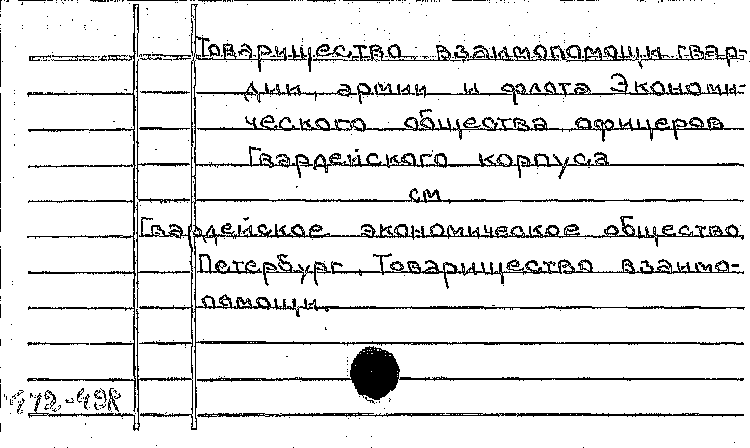 Товарищество взаимопомощи гвар-
дии, армии и флота Экономи-
ческого общества офицеров
Гвардейского корпуса
см.
Гвардейское экономическое общество,
Петербург. Товарищество взаимо-
помощи.